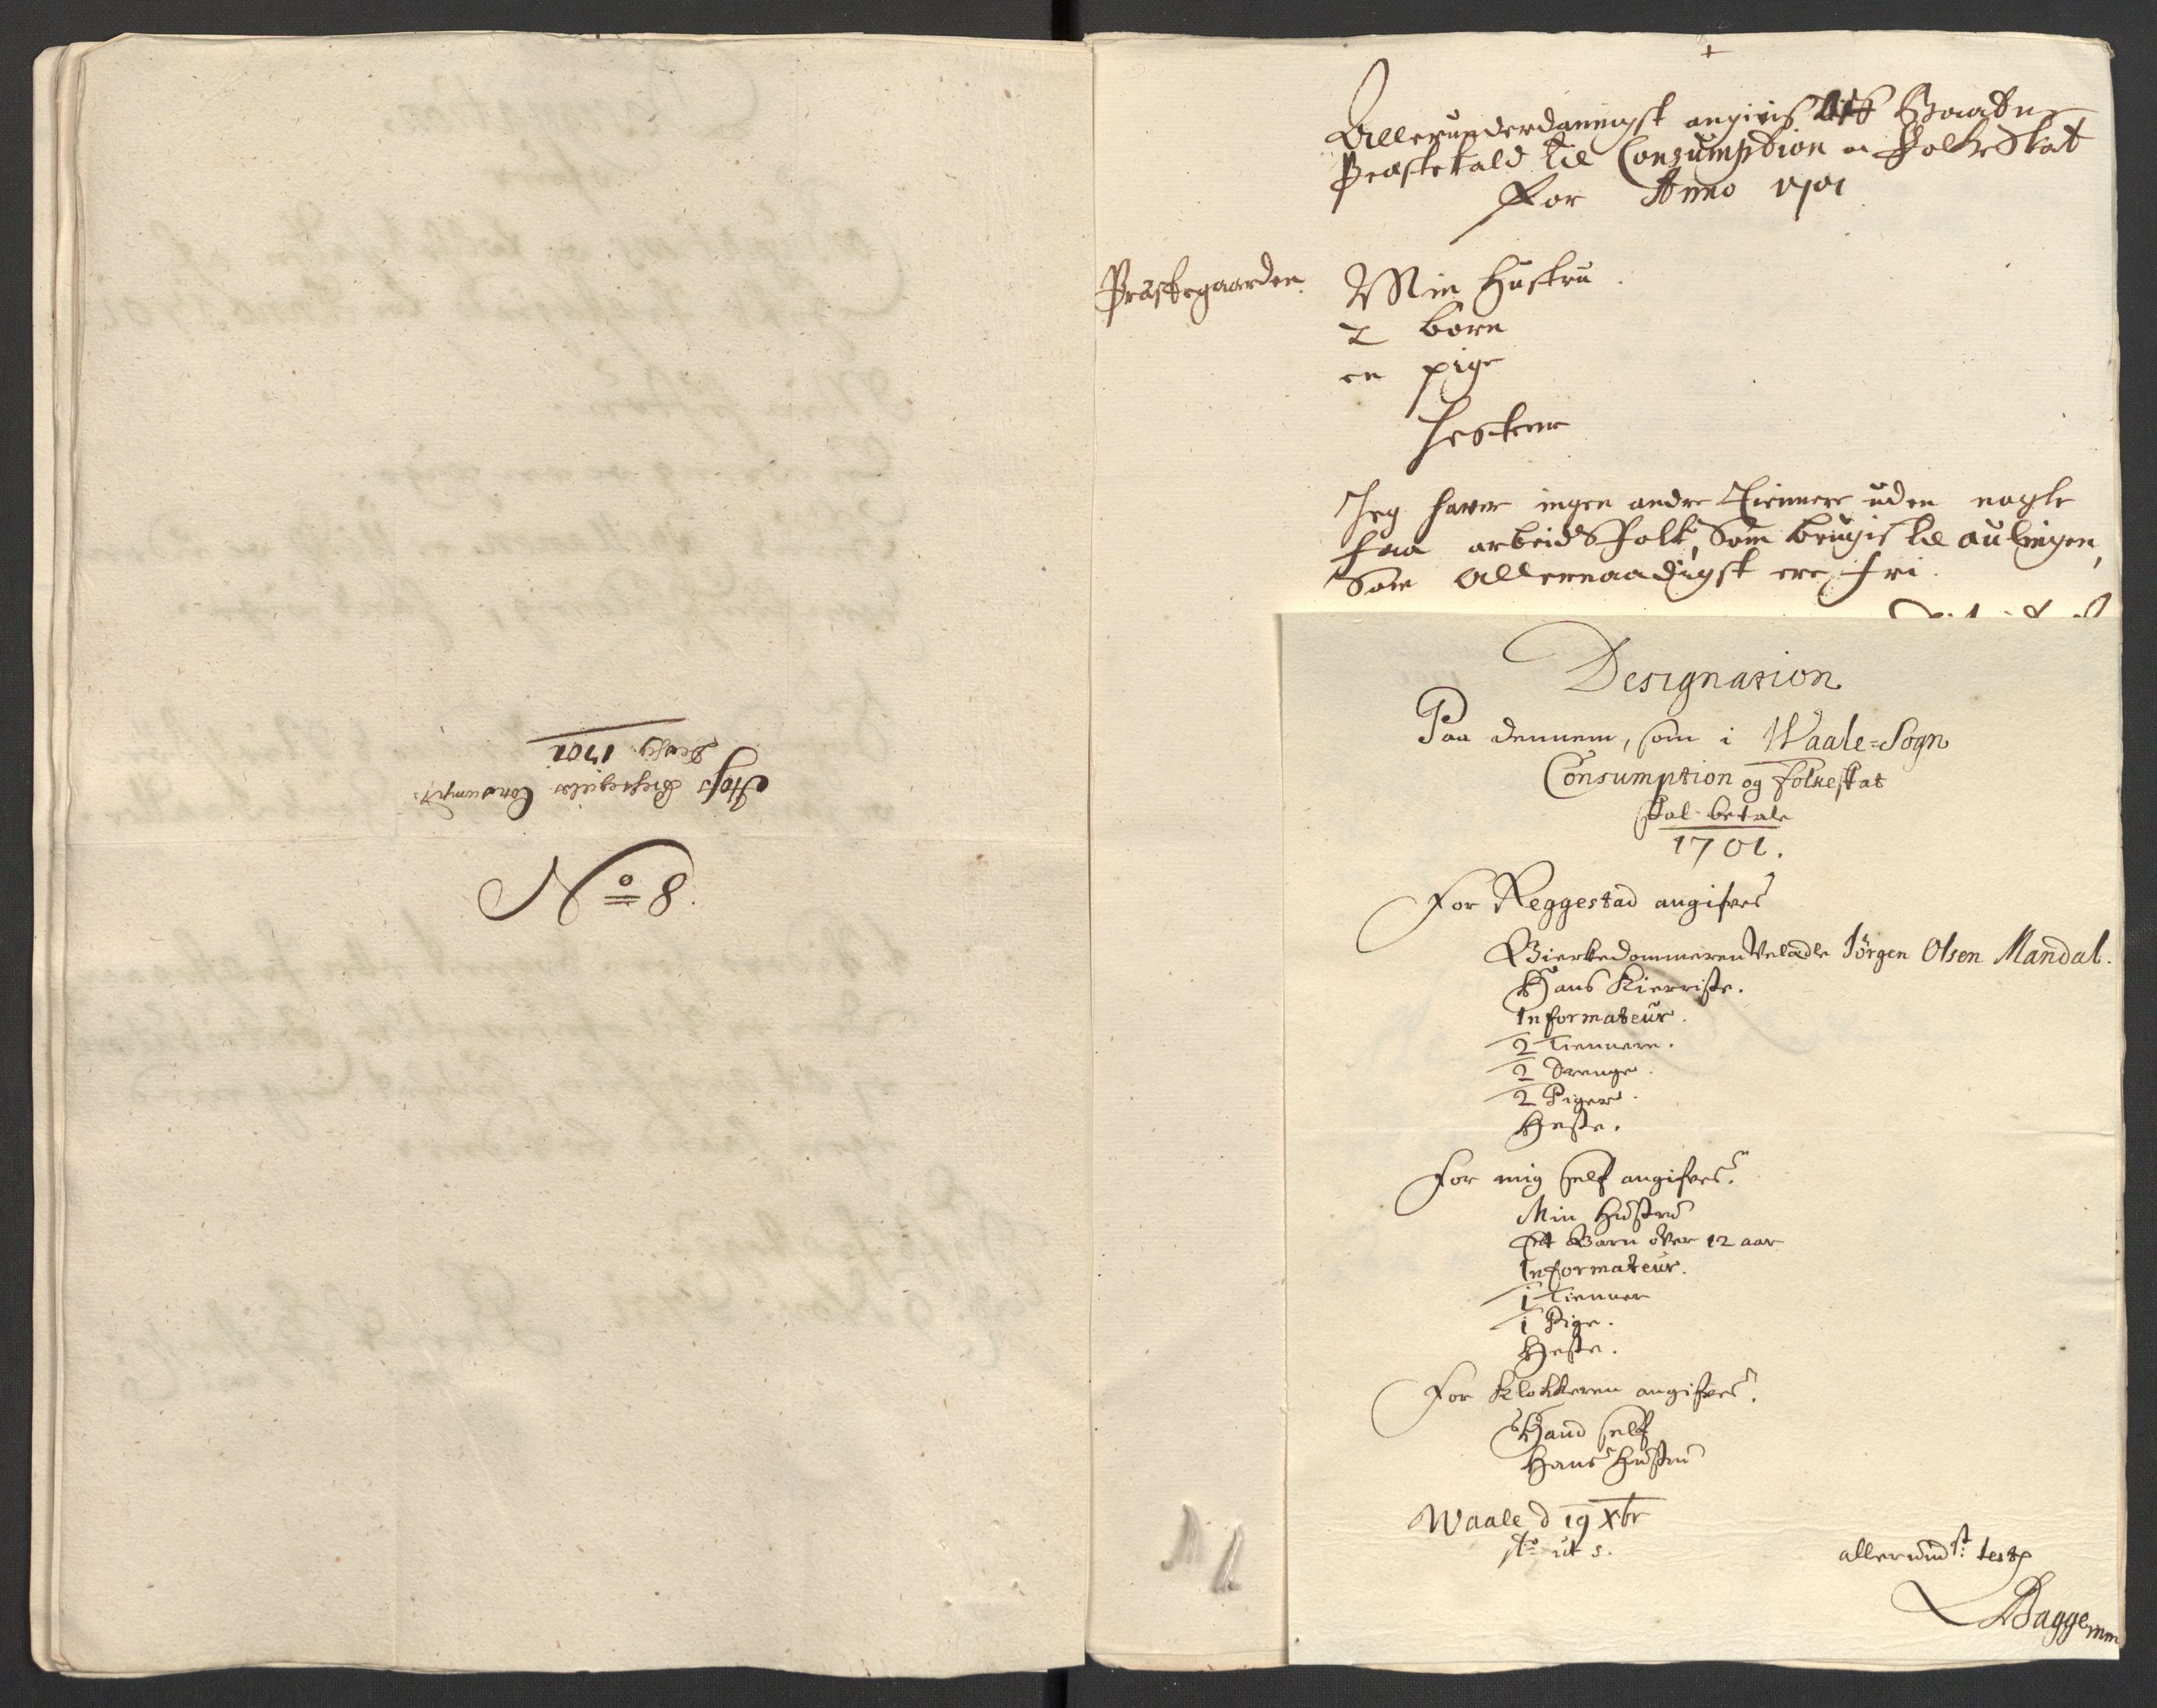 No 8.
Præstegieldz Consumpt:
1701
Allerunderdannigst angivis Aff Baadne
Præstekald til Consumption oc FolkeSkat
For Anno 1701
Præstegaarden
Min Hustru
2 børn
en pige
Hestene
Jeg haver ingen andre Tiennere uden nogle
faa arbeidsfolk, Som brugis til aulingen,
Som Allernaadigst ere fri.
Designation
Paa dennem, som i Waale-Sogn
Consumption og folkeskat
skal betale
1701.
For Reggestad angifves
Bierkedommeren Velædle Jörgen Olsen Mandal.
Hans Kierriste.
Informateur.
2 Tiennere.
2 Drenge.
2 Piger.
Heste.
For mig self angifves.
Min Hustru
Et Barn over 12 aar
Informateur.
1 Tienner
1 Pige.
Heste.
For Klokkeren angifves.
Hand self
Hans Hustru
Waale d 19 Xbr
Ao ut s.
allerundst: test.
Bagge mm